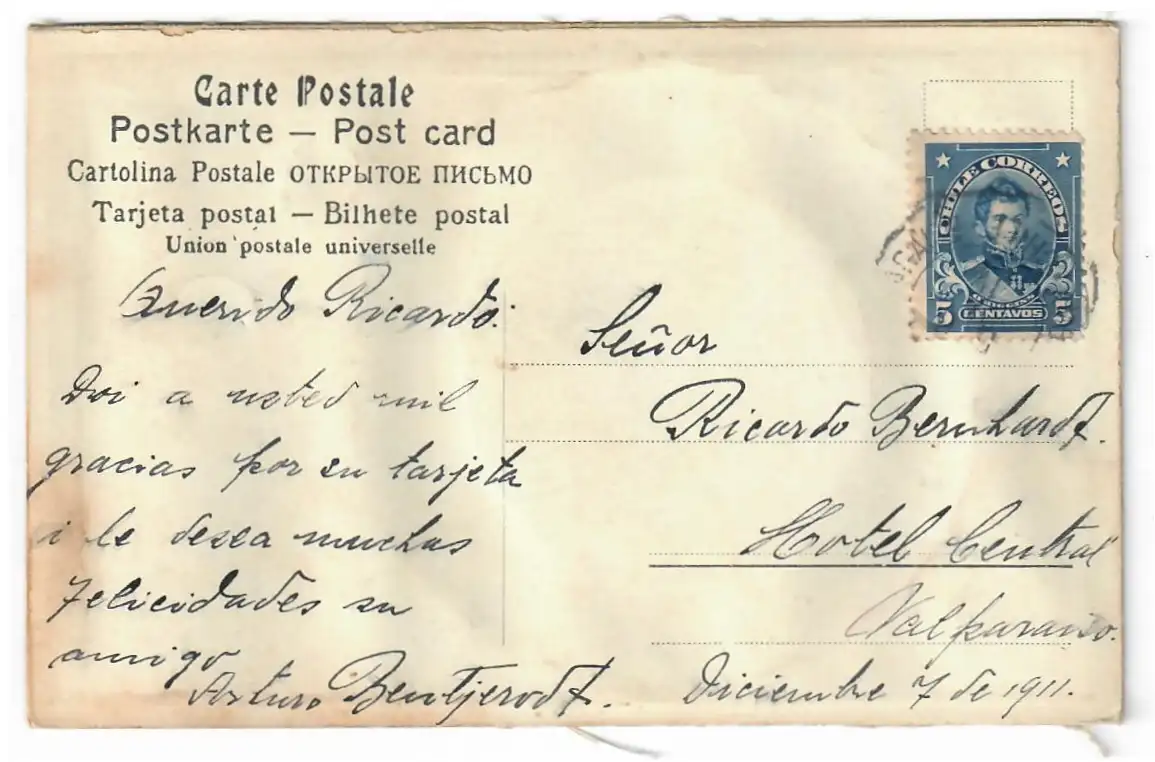 Carte Postale
Postkarte — Post card
Cartolina Postale ОТКРЫТОЕ ПИСЬМО
Tarjeta postal — Bilhete postal
Union postale universelle
Querido Ricardo:
Doi a usted mil
gracias por su tarjeta
i le desea muchas
felicidades su
amigo
Arturo Bentjerodt.
CHILE CORREOS
O'HIGGINS
5 CENTAVOS 5
Señor
Ricardo Bernhardt.
Hotel Central
Valparaiso.
Diciembre 7 de 1911.